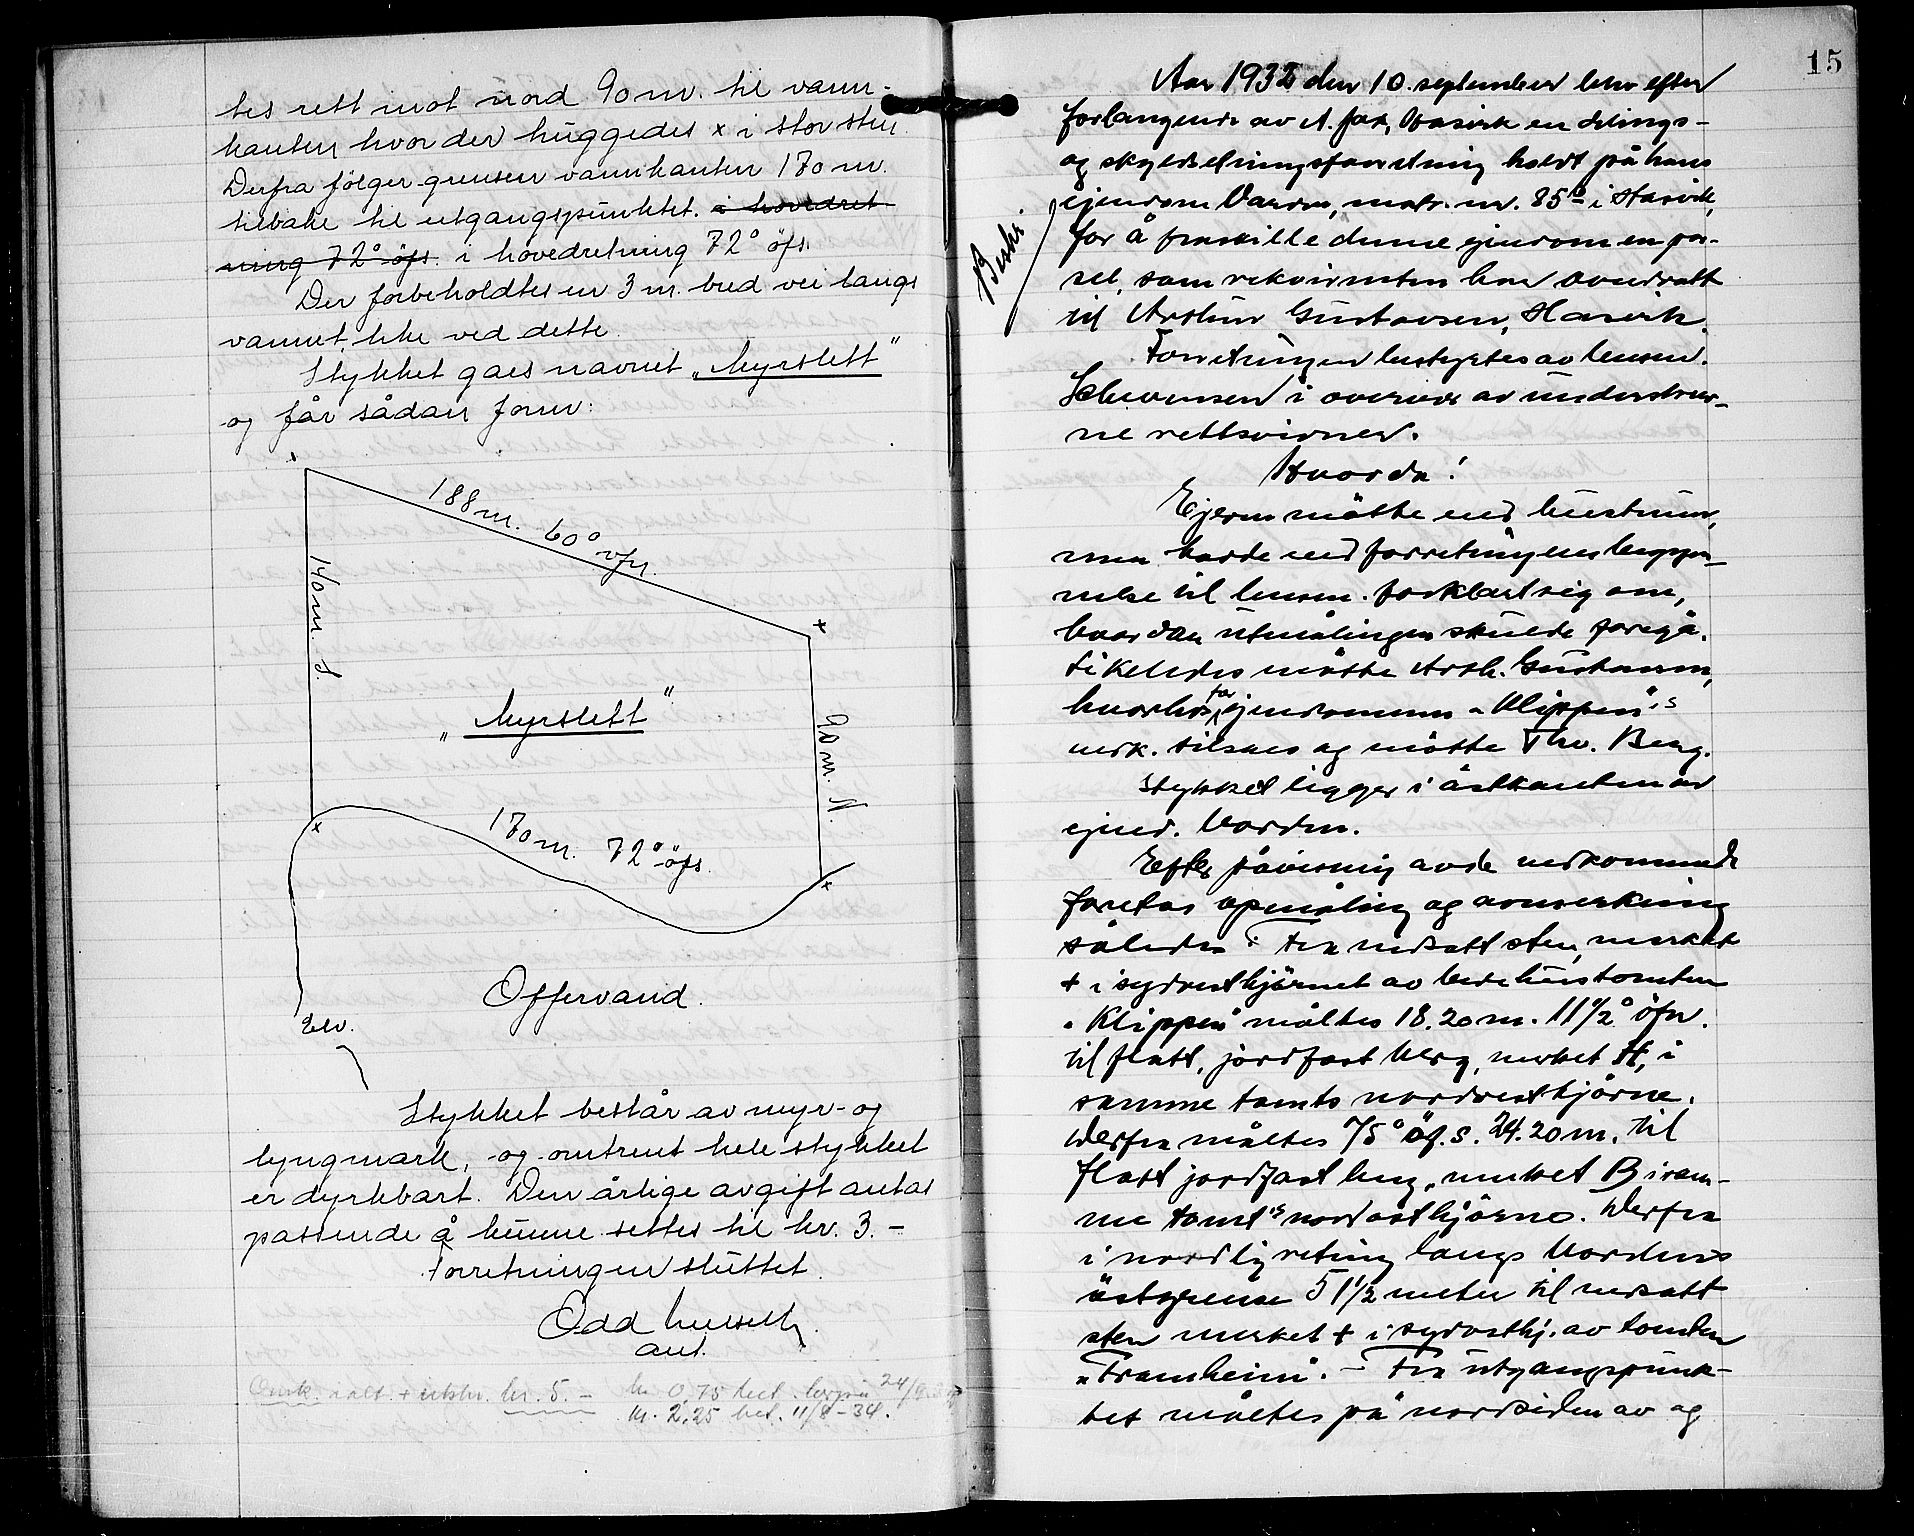 tes rett mot nord 90 m. til vann-
kanten hvor der huggedes x i stor sten.
Derfra følger grensen vannkanten 170 m.
tilbake til utgangspunktet. i hovedret
ning 72° öfs. i hovedretning 72° öfs.
Der forbeholdtes en 3 m. bred vei langs
vannet, like ved dette.
Stykket gaes navnet „Myrslett"
og får sådan form:
188 m. 60° vfn.
140 m. S.
„Myrslett"
90 m. N.
170 m. 72° öfs.
Offervand.
Elv.
Stykket består av myr- og
lyngmark, og omtrent hele stykket
er dyrkbart. Den årlige avgift antas
passende å kunne settes til kr. 3.-
Forretningen sluttet.
Odd
ant.
Omk. ialt + utskr. kr. 5.- kr. 0,75 bet. 24/9
kr. 2,25 bet. 11/8-34.
15
Aar 1932 den 10. september blev efter
forlangende av A. Jax, Hasvik en delings-
og skyldelingsforretning holdt på hans
ejendom Varden, matr. nr. 85 b i Hasvik,
for å fraskille denne ejendom en par-
sel, som rekvirenten har overdratt
til Arthur Gustavsen, Hasvik.
Beskr
Forretningen bestyrtes av lensm.
i overvær av underskrev-
ne rettsvidner.
Hvorda!
Ejeren møtte ved hustruen,
men hadde ved forretningens begyn-
nelse til lensm. forklart sig om,
hvordan utmålingen skulde foregå.
Likeledes møtte Arth. Gustavsen,
hvorhos for ejendommen „Klippen"s
verk. tilsaes og møtte Thv. Berg.
Stykket ligger i östkanten av
ejend. Varden.
Efter påvisning av de vedkommende
foretas opmåling og avmerkning
således: Fra nedsatt sten, merket
+ i sydvesthjörnet av bedehustomten
„Klippen" måltes 18.20 m. 11½° öfn.
til flatt, jordfast berg, merket H, i
samme tomts nordvesthjörne.
Derfra måltes 75° öf.s. 24.20 m. til
flatt jordfast berg, merket B i sam-
me tomt's nordosthjörne. Derfra
i nordlig retning langs Vardens
östgrense 51½ meter til nedsatt
sten merket + i sydvesthj. av tomten
„Framheim". - Fra utgangspunk-
tet måltes på nordsiden av og